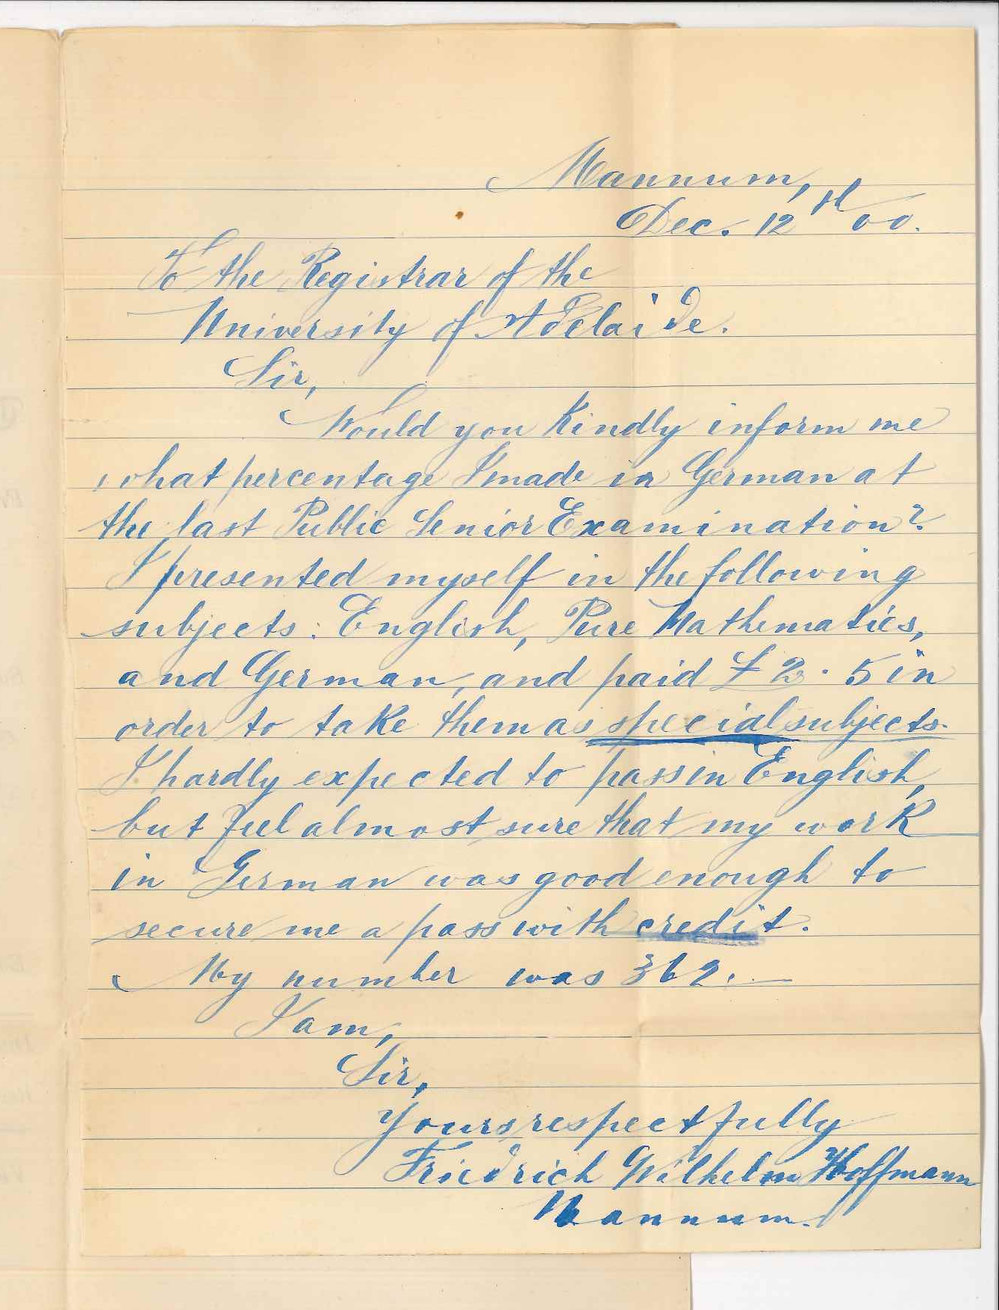 Mannum,
Dec. 12th 00.
To the Registrar of the
University of Adelaide.
Sir,
Would you kindly inform me
what percentage I made in German at
the last Public Senior Examination?
I presented myself in the following
subjects: English, Pure Mathematics,
and German, and paid £2·5 in
order to take them as special subjects.
I hardly expected to pass in English,
but feel almost sure that my work
in German was good enough to
secure me a pass with credit.
My number was 362.—
I am,
Sir,
Yours respectfully
Friedrich Wilhelm Hoffmann
Mannum.